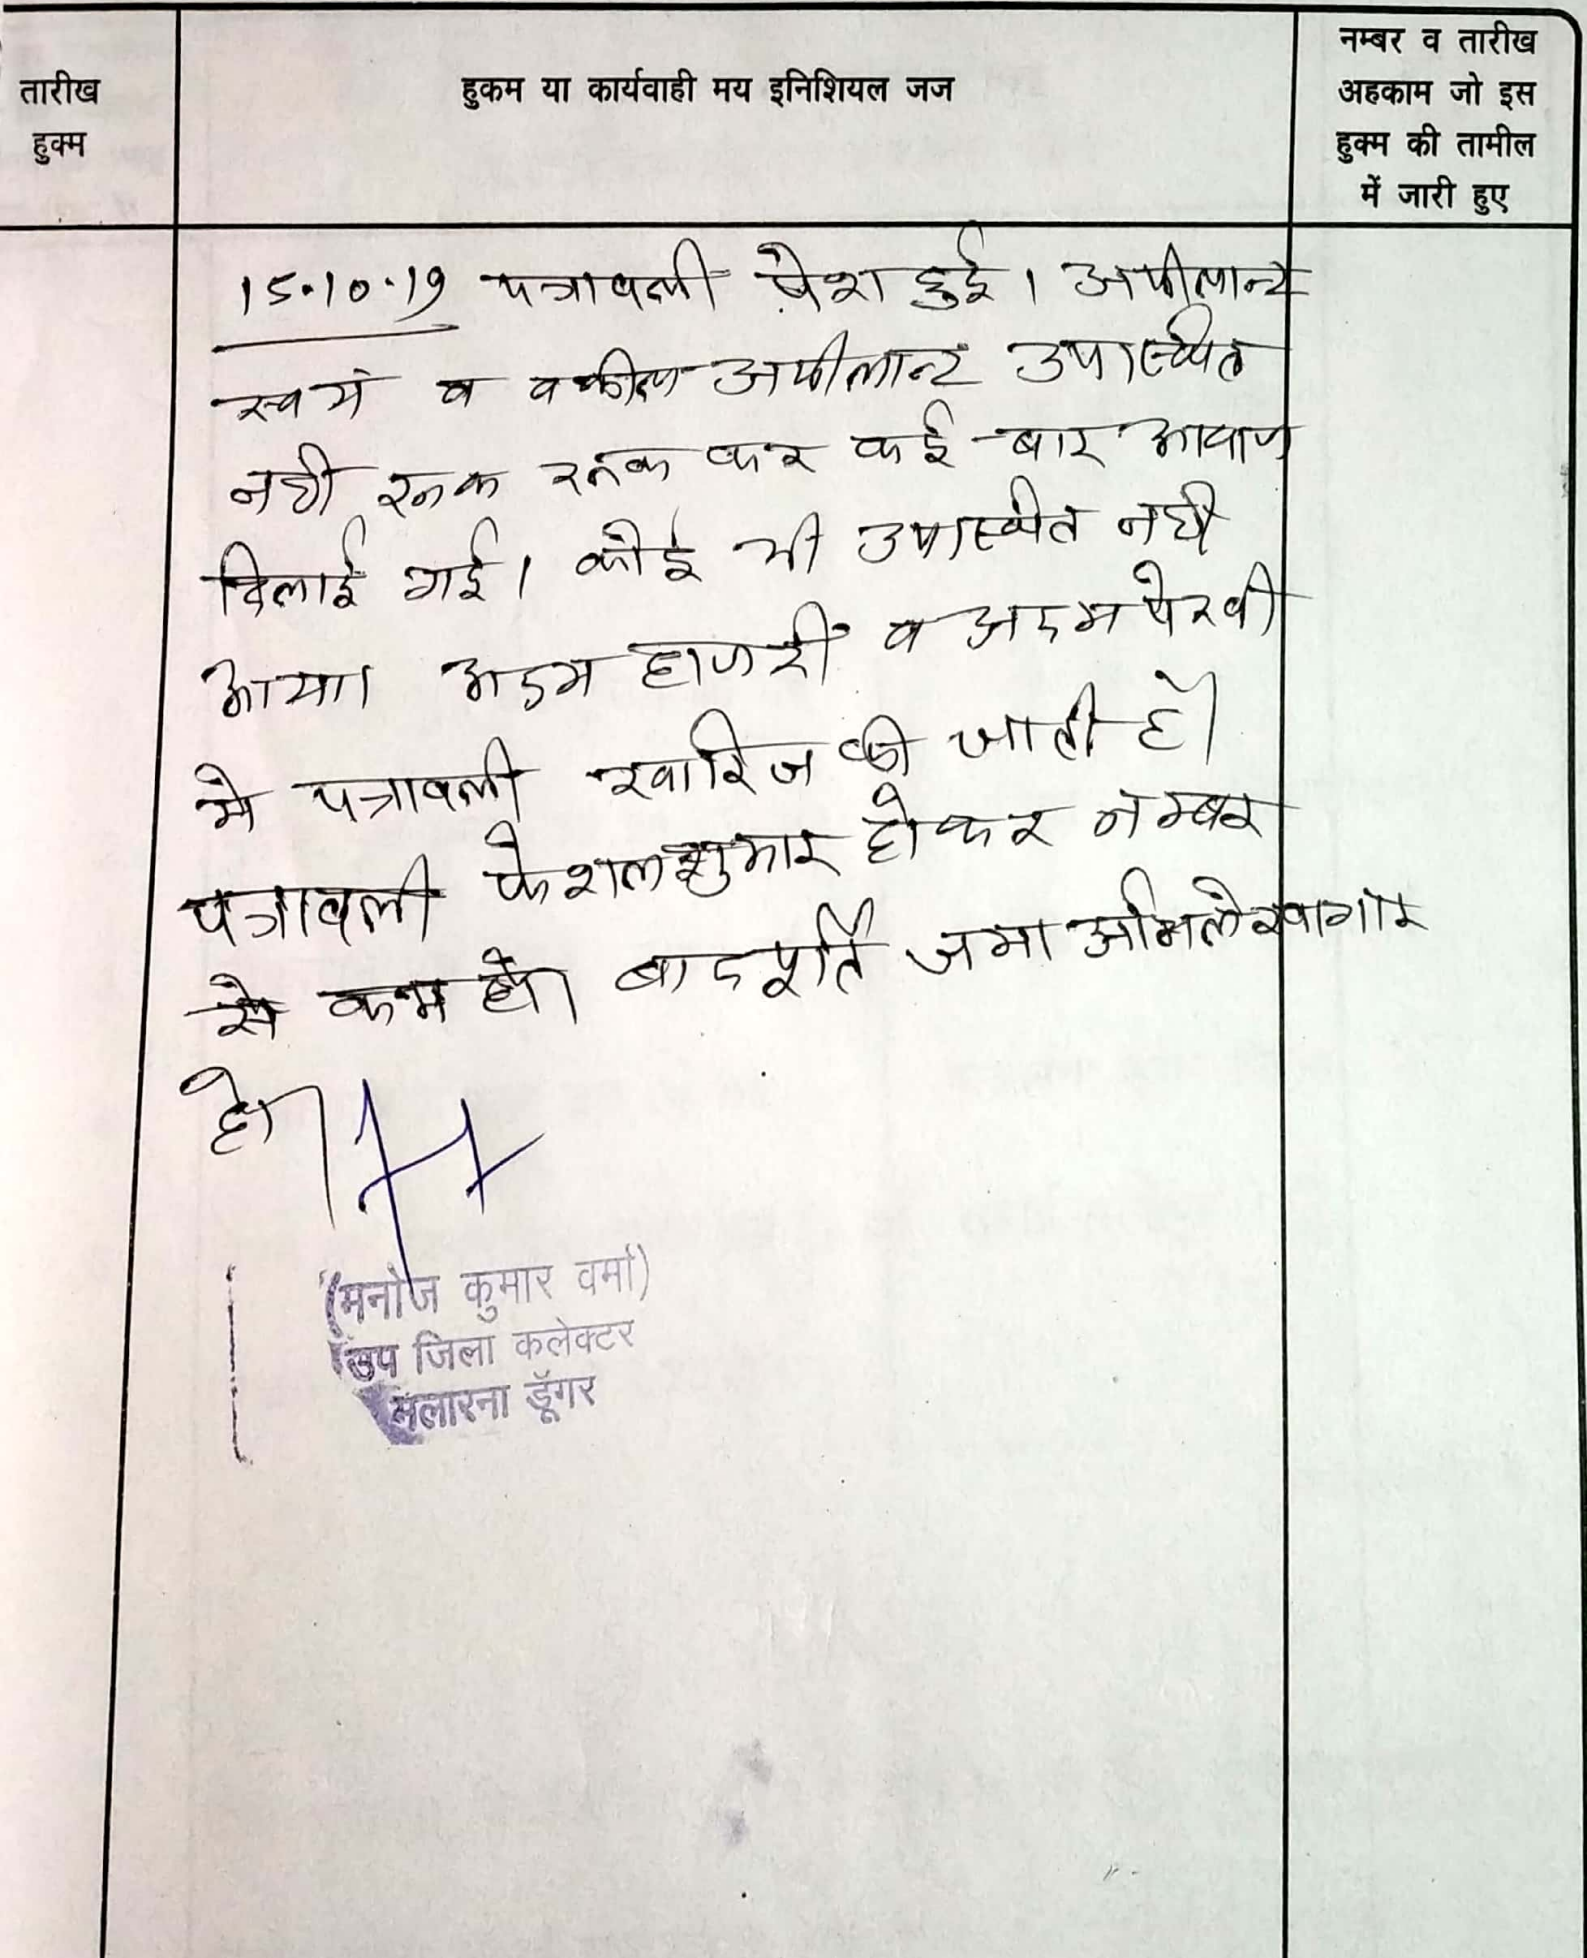 तारीख
हुक्म
हुकम या कार्यवाही मय इनिशियल जज
नम्बर व तारीख
अहकाम जो इस
हुक्म की तामील
में जारी हुए
15.10.19 पत्रावली पेश हुई। अपीलान्ट
स्वयं व वकील अपीलान्ट उपस्थित
नही रूक रूक कर कई बार आवाज
दिलाई गई। कोई भी उपस्थित नही
आया। अदम हाजरी व अदम पेरवी
मे पत्रावली खारिज की जाती है।
पत्रावली फेशल शुमार होकर नम्बर
से कम हो। बाद पूर्ति जमा अभिलेखागार
हो।
(मनोज कुमार वर्मा)
उप जिला कलेक्टर
मलारना डूँगर